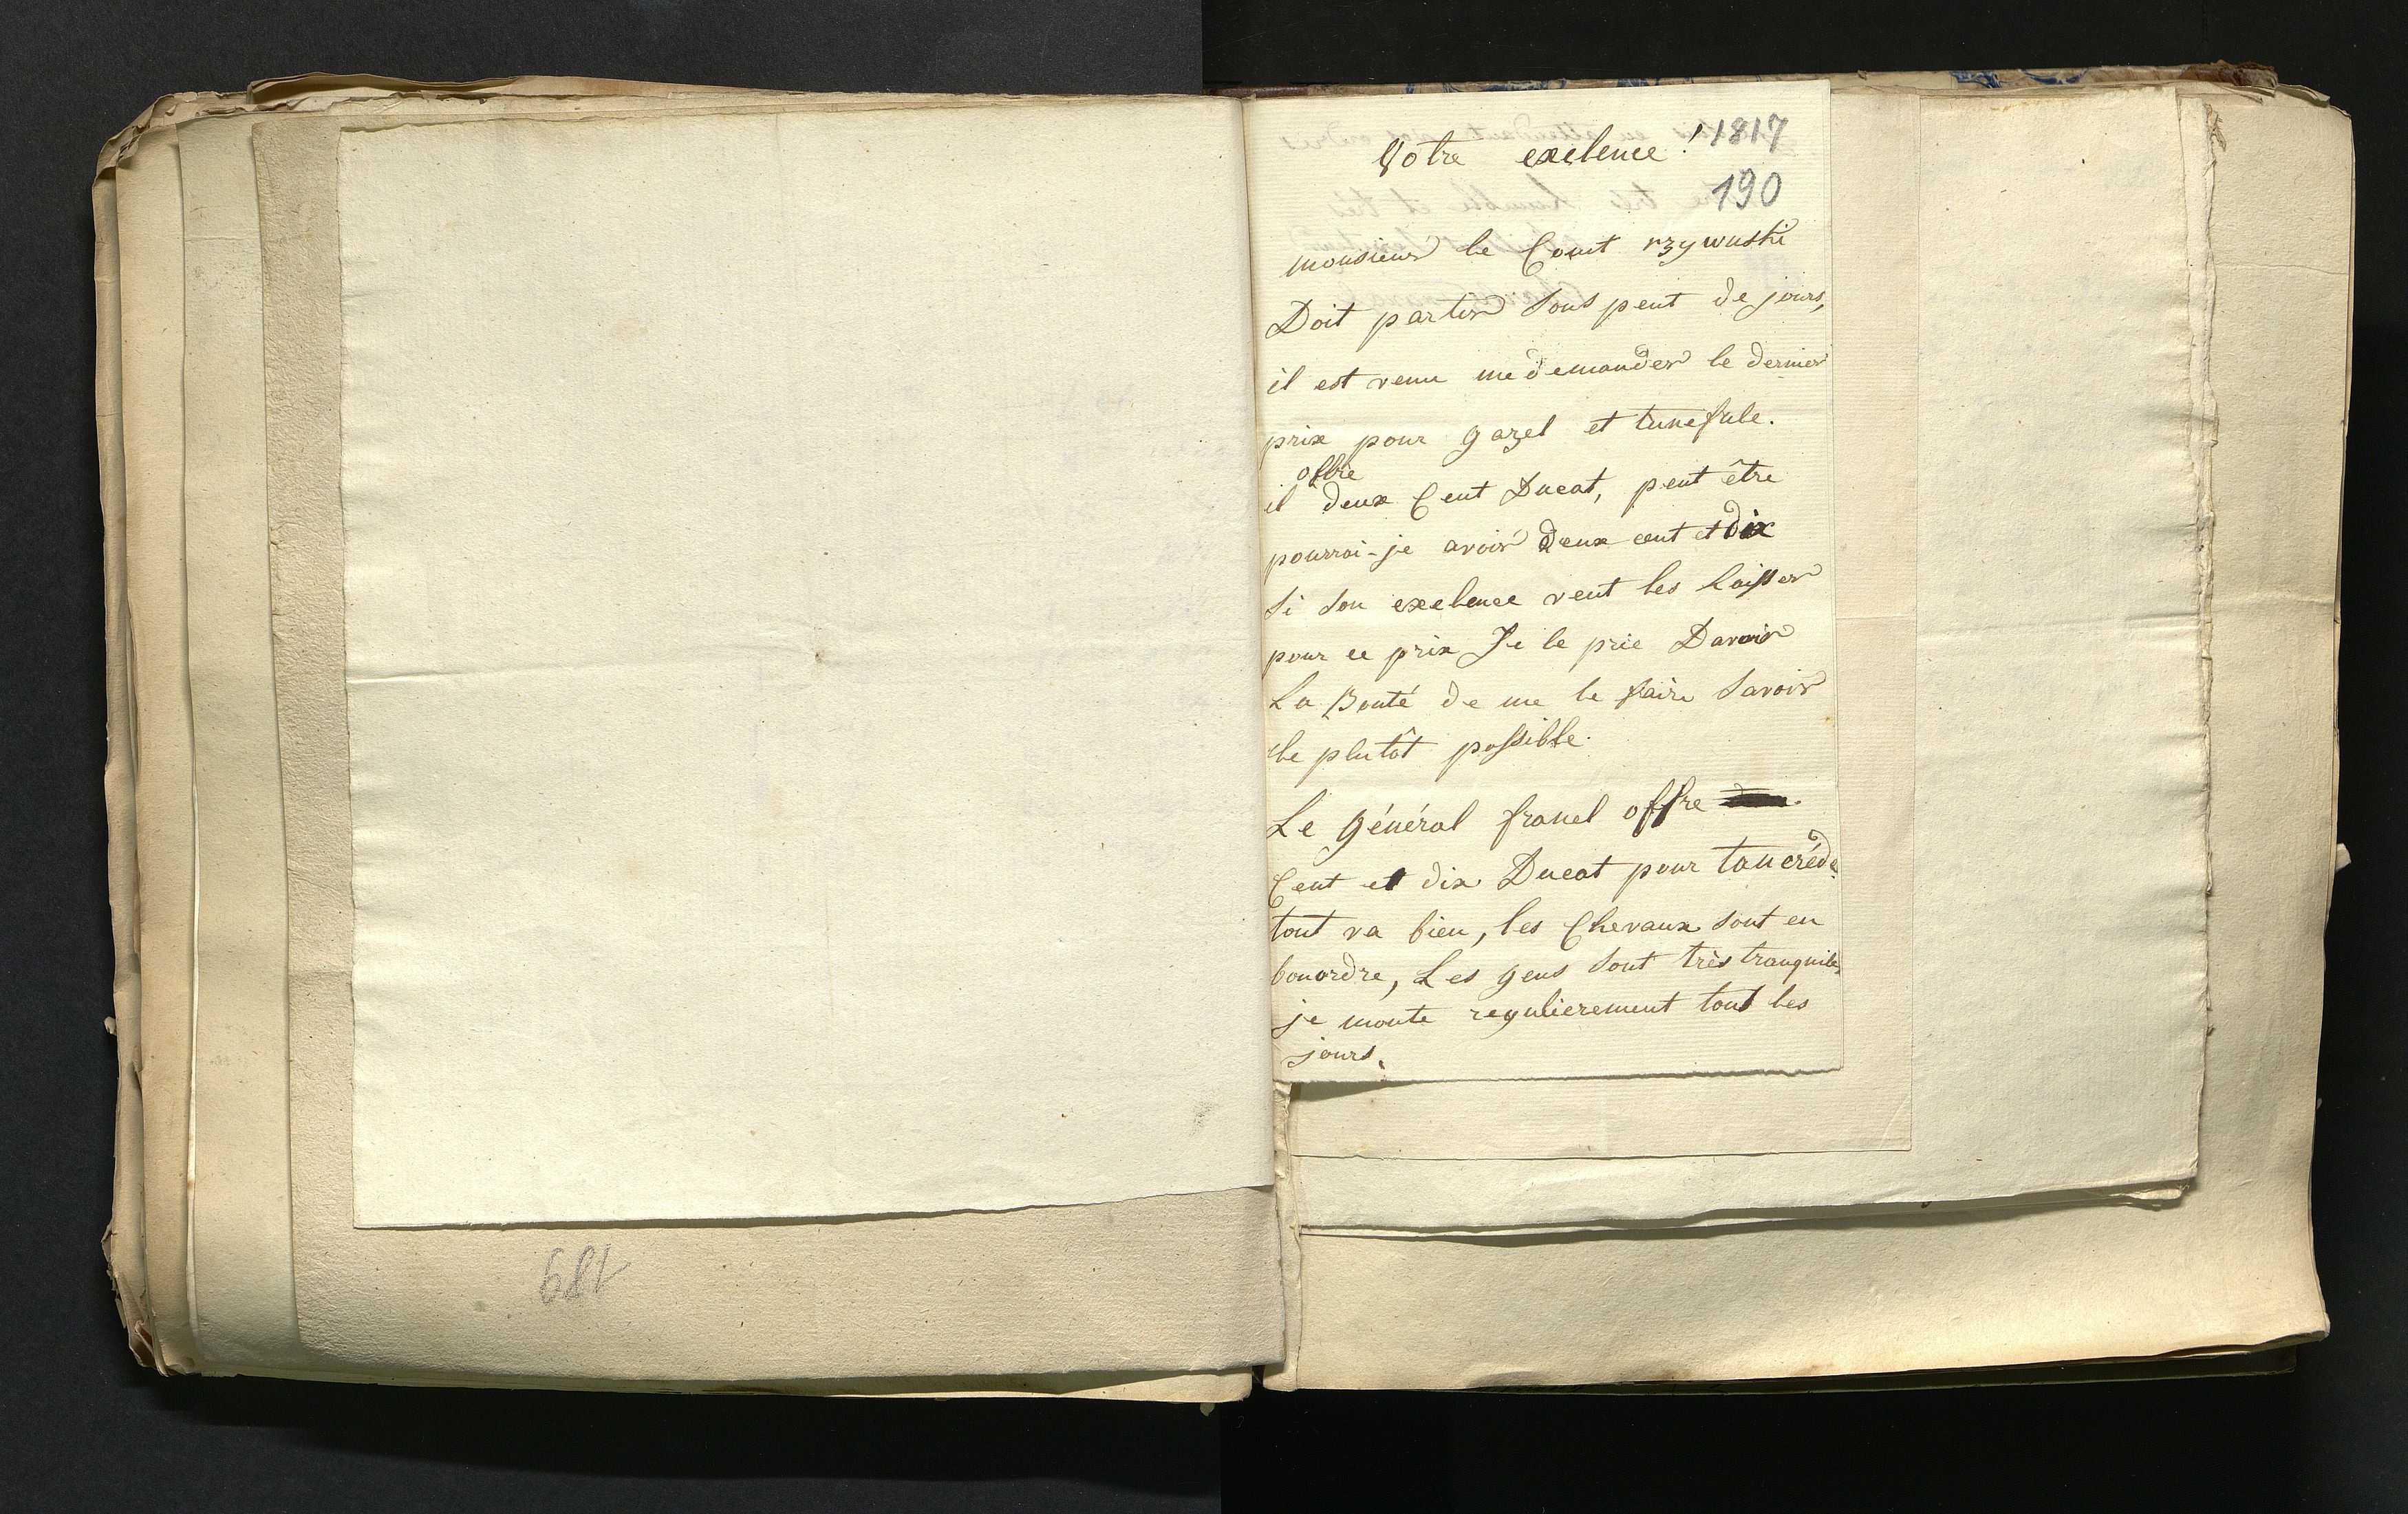 189
Votre exelence! 1817
190
monsieur le Comt rzywuski
Doit partir sous peut de jours,
il est venu me demander le dernier
prix pour gazel et tunefule.
offre
il deux Cent Ducat, peut être
pourrai-je avoir deux cent et dix
si son exelence veut les laisser
pour ce prix Je le prie Davoir
La Bonté de me le faire savoir
le plutôt possible.
Le général franel offre
Cent et dix Ducat pour tancréde.
tout va bien, les Chevaux sont en
bonordre, Les gens sont très tranquiles
je monte regulierement tout les
jours.